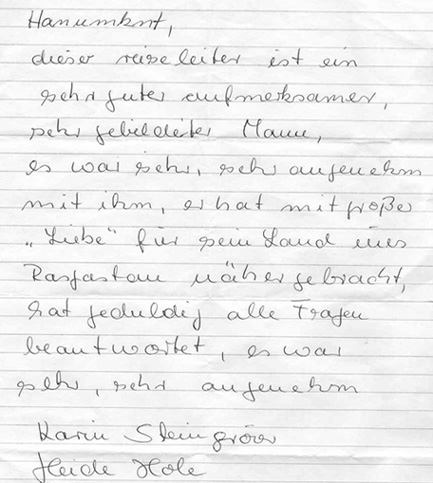 Hanumknt,
dieser reiseleiter ist ein
sehr guter aufmerksamer,
sehr gebildeter Mann,
es war sehr, sehr angenehm
mit ihm, er hat mit großer
„Liebe“ für sein Land uns
Rasjastan näher gebracht,
hat geduldig alle Fragen
beantwortet, es war
sehr, sehr angenehm
Karin
Heide Hole